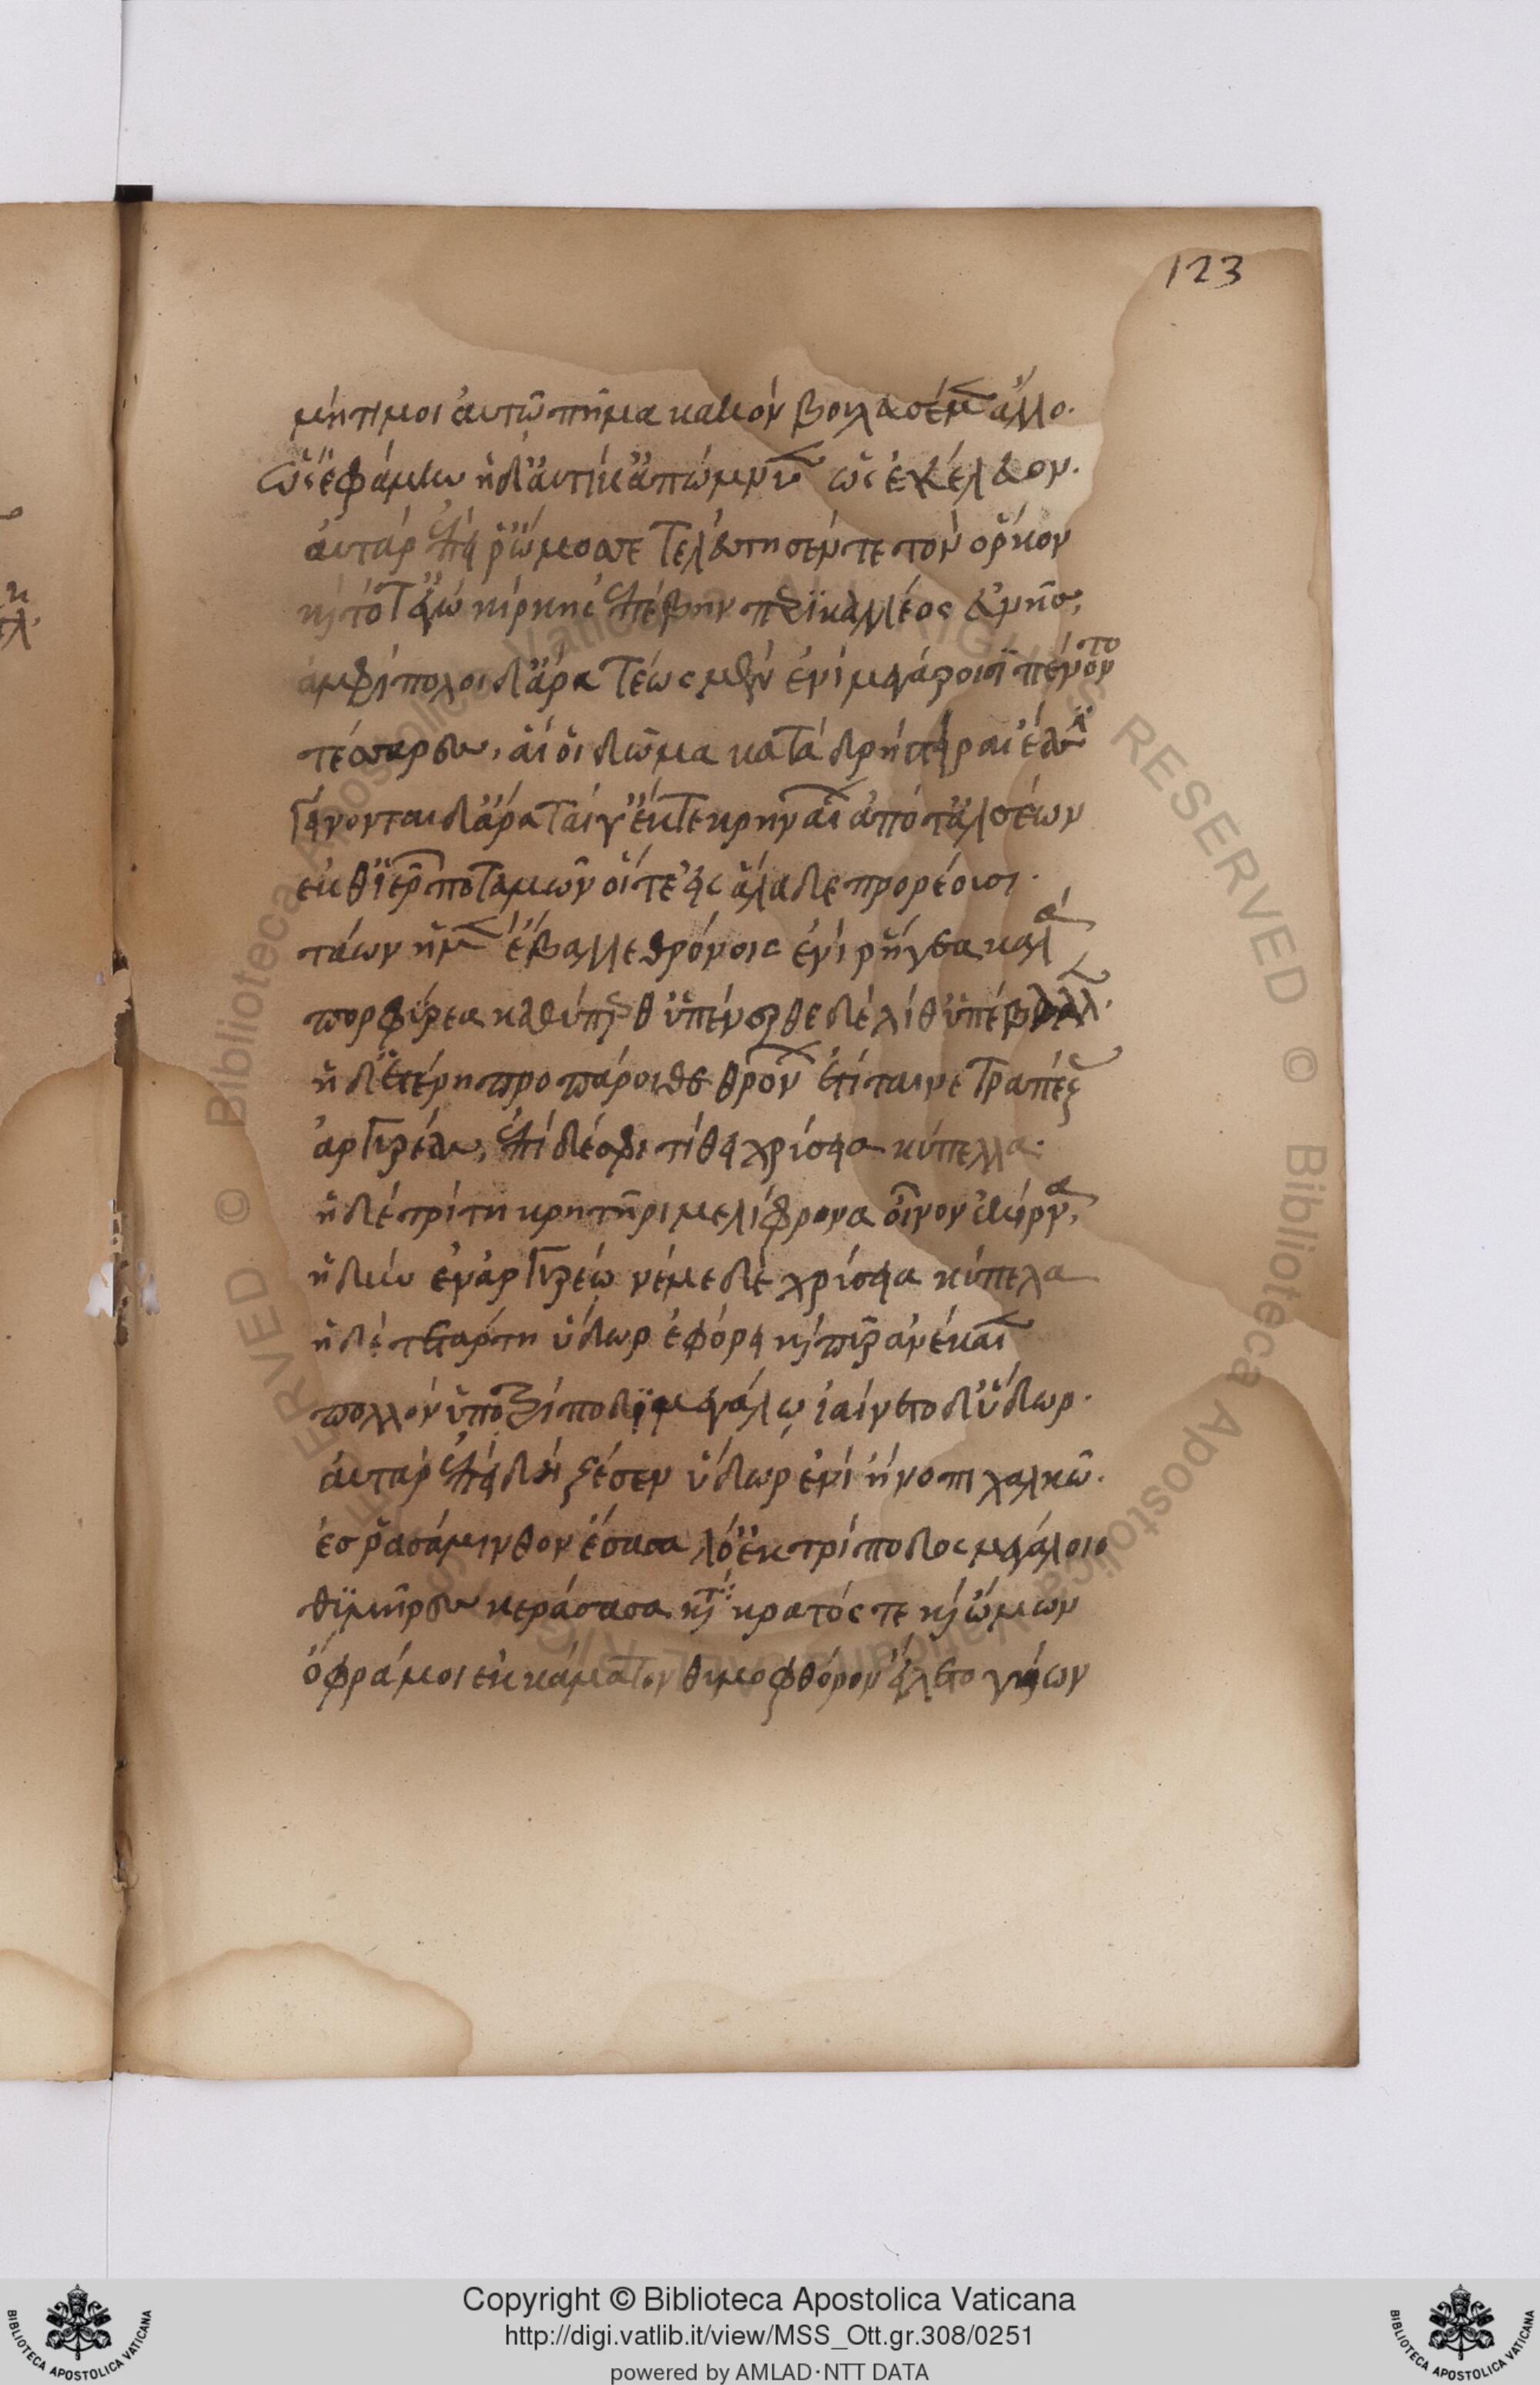 123
μήτι μοι αὐτῷ πῆμα κακὸν βουλευσέμεν ἄλλο.
ὣς ἐφάμην ἡ δ' αὐτίκ' ἀπώμνυεν ὡς ἐκέλευον.
αὐτὰρ ἐπεί ῥ' ὤμοσέ τε τελεύτησέν τε τὸν ὅρκον
καὶ τότ' ἐγὼ κίρκης ἐπέβην περικαλλέος εὐνῆς,
ἀμφίπολοι δ' ἄρα τέως μὲν ἐνὶ μεγάροισι πένοντο
τέσσαρες, αἵ οἱ δῶμα κάτα δρήστειραι ἔασι
γείνονται δ' ἄρα ταί γ' ἔκ τε κρηνέων ἀπό τ' ἀλσέων
ἐκ θ' ἱερῶν ποταμῶν οἵ τ' εἰς ἅλαδε προρέουσι.
τάων ἡ μὲν ἔβαλλε θρόνοις ἔνι ῥήγεα καλὰ
πορφύρεα καθύπερθ' ὑπένερθε δὲ λίθ' ὑπέβαλλεν.
ἡ δ' ἑτέρη προπάροιθε θρόνων ἐτίταινε τραπέζας
ἀργυρέας, ἐπὶ δέ σφι τίθει χρύσεια κύπελλα.
ἡ δὲ τρίτη κρητῆρι μελίφρονα οἶνον ἐκίρνα,
ἡδὺν ἐν ἀργυρέῳ νέμε δὲ χρύσεια κύπελα
ἡ δὲ τετάρτη ὕδωρ ἐφόρει καὶ πῦρ ἀνέκαιεν
πολλὸν ὑπὸ τρίποδι μεγάλῳ ἰαίνετο δ' ὕδωρ.
αὐτὰρ ἐπεὶ δὴ ζέσεν ὕδωρ ἐνὶ ἤνοπι χαλκῷ.
ἔς ῥ' ἀσάμινθον ἕσασα λό' ἐκ τρίποδος μεγάλοιο
θυμῆρες κεράσασα κατὰ κρατός τε καὶ ὤμων
ὄφρά μοι ἐκ κάματον θυμοφθόρον εἵλετο γυίων
Copyright © Biblioteca Apostolica Vaticana
http://digi.vatlib.it/view/MSS_Ott.gr.308/0251
powered by AMLAD·NTT DATA